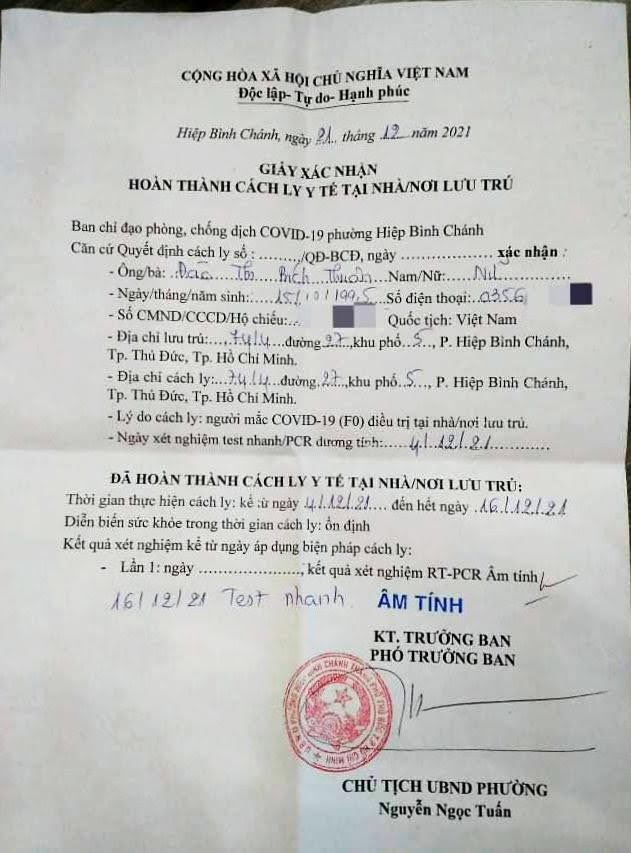 CỘNG HÒA XÃ HỘI CHỦ NGHĨA VIỆT NAM
Độc lập- Tự do- Hạnh phúc
Hiệp Bình Chánh, ngày 21 tháng 12 năm 2021
GIẤY XÁC NHẬN
HOÀN THÀNH CÁCH LY Y TẾ TẠI NHÀ/NƠI LƯU TRÚ
Ban chỉ đạo phòng, chống dịch COVID-19 phường Hiệp Bình Chánh
Căn cứ Quyết định cách ly số : ........./QĐ-BCĐ, ngày .................. xác nhận :
- Ông/bà: Đào Thị Bích Thuần Nam/Nữ: Nữ
- Ngày/tháng/năm sinh: 15/10/1995 Số điện thoại: 0356
- Số CMND/CCCD/Hộ chiếu: Quốc tịch: Việt Nam
- Địa chỉ lưu trú: 74/4 đường 27, khu phố 5, P. Hiệp Bình Chánh,
Tp. Thủ Đức, Tp. Hồ Chí Minh.
- Địa chỉ cách ly: 74/4 đường 27, khu phố 5, P. Hiệp Bình Chánh,
Tp. Thủ Đức, Tp. Hồ Chí Minh.
- Lý do cách ly: người mắc COVID-19 (F0) điều trị tại nhà/nơi lưu trú.
- Ngày xét nghiệm test nhanh/PCR dương tính: 4/12/21
ĐÃ HOÀN THÀNH CÁCH LY Y TẾ TẠI NHÀ/NƠI LƯU TRÚ:
Thời gian thực hiện cách ly: kể từ ngày 4/12/21 đến hết ngày 16/12/21
Diễn biến sức khỏe trong thời gian cách ly: ổn định
Kết quả xét nghiệm kể từ ngày áp dụng biện pháp cách ly:
- Lần 1: ngày ...................., kết quả xét nghiệm RT-PCR Âm tính
16/12/21 Test nhanh ÂM TÍNH
KT. TRƯỞNG BAN
PHÓ TRƯỞNG BAN
CHỦ TỊCH UBND PHƯỜNG
Nguyễn Ngọc Tuấn